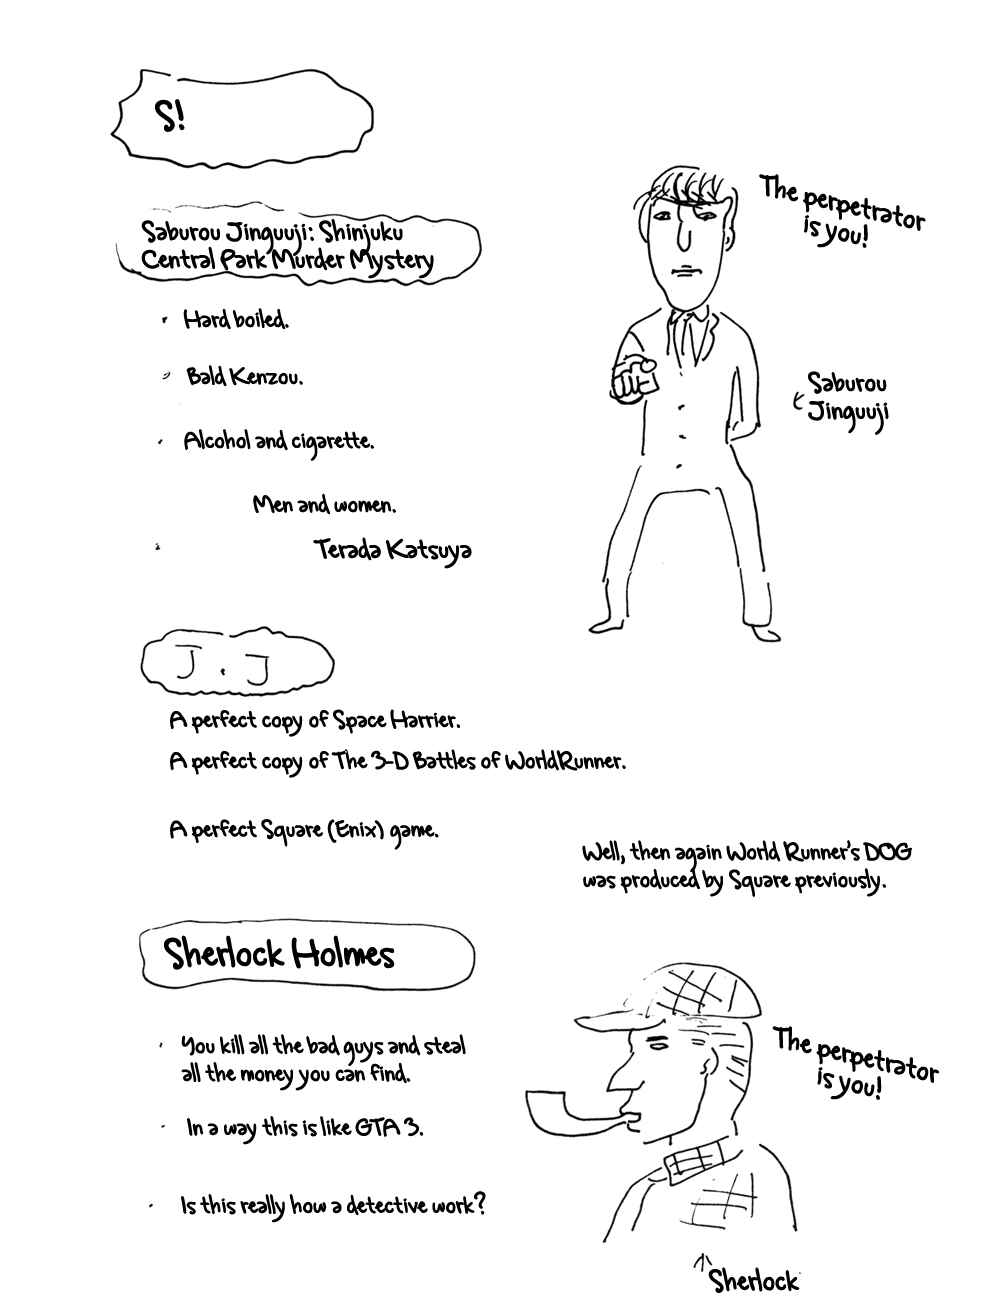 S!
Saburou Jinguuji: Shinjuku
Central Park Murder Mystery
The perpetrator
is you!
Hard boiled.
Bald Kenzou.
Saburou
Jinguuji
Alcohol and cigarette.
Men and women.
Terada Katsuya
J.J
A perfect copy of Space Harrier.
A perfect copy of The 3-D Battles of WorldRunner.
A perfect Square (Enix) game.
Well, then again World Runner's DOG
was produced by Square previously.
Sherlock Holmes
You kill all the bad guys and steal
all the money you can find.
The perpetrator
is you!
In a way this is like GTA 3.
Is this really how a detective work?
Sherlock